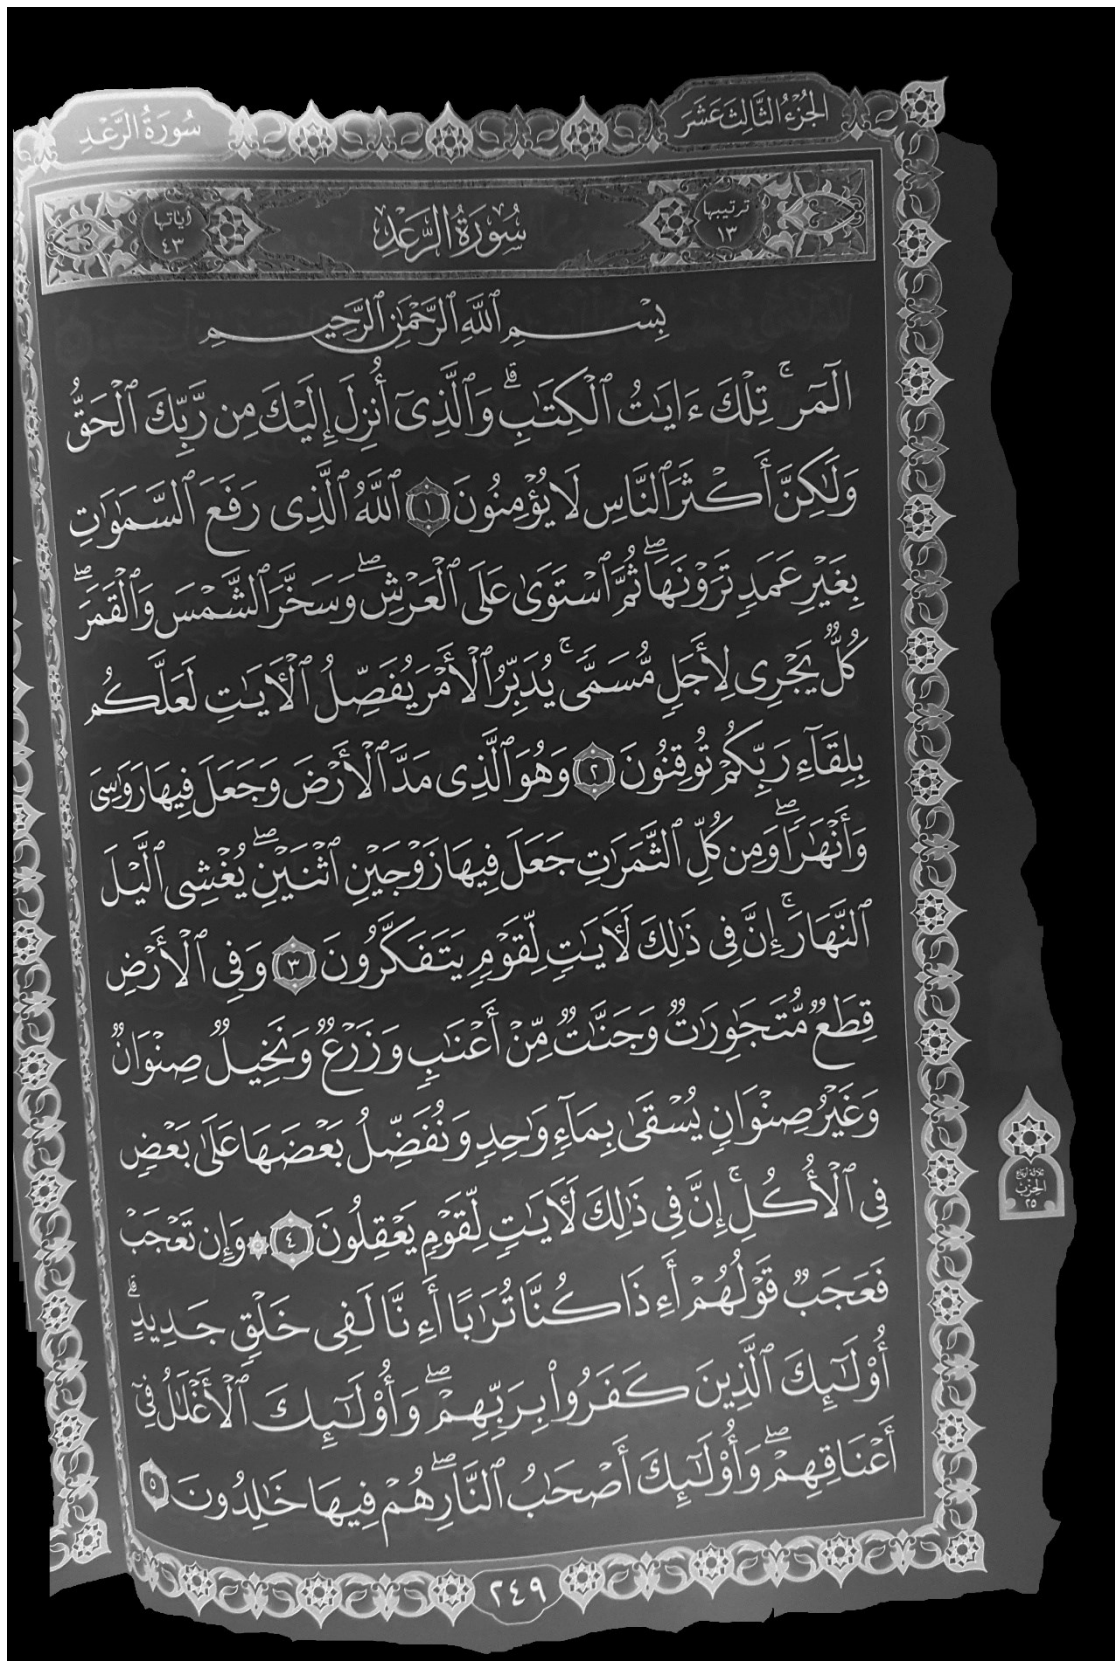 الجزء الثالث عشر
سورة الرعد
ترتيبها ١٣
سُورَةُ الرَّعْدِ
آياتها ٤٣
بِسْمِ ٱللَّهِ ٱلرَّحْمَٰنِ ٱلرَّحِيمِ
الٓمٓر ۚ تِلْكَ ءَايَٰتُ ٱلْكِتَٰبِ ۗ وَٱلَّذِىٓ أُنزِلَ إِلَيْكَ مِن رَّبِّكَ ٱلْحَقُّ
وَلَٰكِنَّ أَكْثَرَ ٱلنَّاسِ لَا يُؤْمِنُونَ ١ ٱللَّهُ ٱلَّذِى رَفَعَ ٱلسَّمَٰوَٰتِ
بِغَيْرِ عَمَدٍ تَرَوْنَهَا ۖ ثُمَّ ٱسْتَوَىٰ عَلَى ٱلْعَرْشِ ۖ وَسَخَّرَ ٱلشَّمْسَ وَٱلْقَمَرَ ۖ
كُلٌّ يَجْرِى لِأَجَلٍ مُّسَمًّى ۚ يُدَبِّرُ ٱلْأَمْرَ يُفَصِّلُ ٱلْءَايَٰتِ لَعَلَّكُم
بِلِقَآءِ رَبِّكُمْ تُوقِنُونَ ٢ وَهُوَ ٱلَّذِى مَدَّ ٱلْأَرْضَ وَجَعَلَ فِيهَا رَوَٰسِىَ
وَأَنْهَٰرًا ۖ وَمِن كُلِّ ٱلثَّمَرَٰتِ جَعَلَ فِيهَا زَوْجَيْنِ ٱثْنَيْنِ ۖ يُغْشِى ٱلَّيْلَ
ٱلنَّهَارَ ۚ إِنَّ فِى ذَٰلِكَ لَءَايَٰتٍ لِّقَوْمٍ يَتَفَكَّرُونَ ٣ وَفِى ٱلْأَرْضِ
قِطَعٌ مُّتَجَٰوِرَٰتٌ وَجَنَّٰتٌ مِّنْ أَعْنَٰبٍ وَزَرْعٌ وَنَخِيلٌ صِنْوَانٌ
وَغَيْرُ صِنْوَانٍ يُسْقَىٰ بِمَآءٍ وَٰحِدٍ وَنُفَضِّلُ بَعْضَهَا عَلَىٰ بَعْضٍ
فِى ٱلْأُكُلِ ۚ إِنَّ فِى ذَٰلِكَ لَءَايَٰتٍ لِّقَوْمٍ يَعْقِلُونَ ٤ ۞ وَإِن تَعْجَبْ
فَعَجَبٌ قَوْلُهُمْ أَءِذَا كُنَّا تُرَٰبًا أَءِنَّا لَفِى خَلْقٍ جَدِيدٍ ۗ
أُو۟لَٰٓئِكَ ٱلَّذِينَ كَفَرُوا۟ بِرَبِّهِمْ ۖ وَأُو۟لَٰٓئِكَ ٱلْأَغْلَٰلُ فِىٓ
أَعْنَاقِهِمْ ۖ وَأُو۟لَٰٓئِكَ أَصْحَٰبُ ٱلنَّارِ ۖ هُمْ فِيهَا خَٰلِدُونَ ٥
الحزب
٢٥
٢٤٩